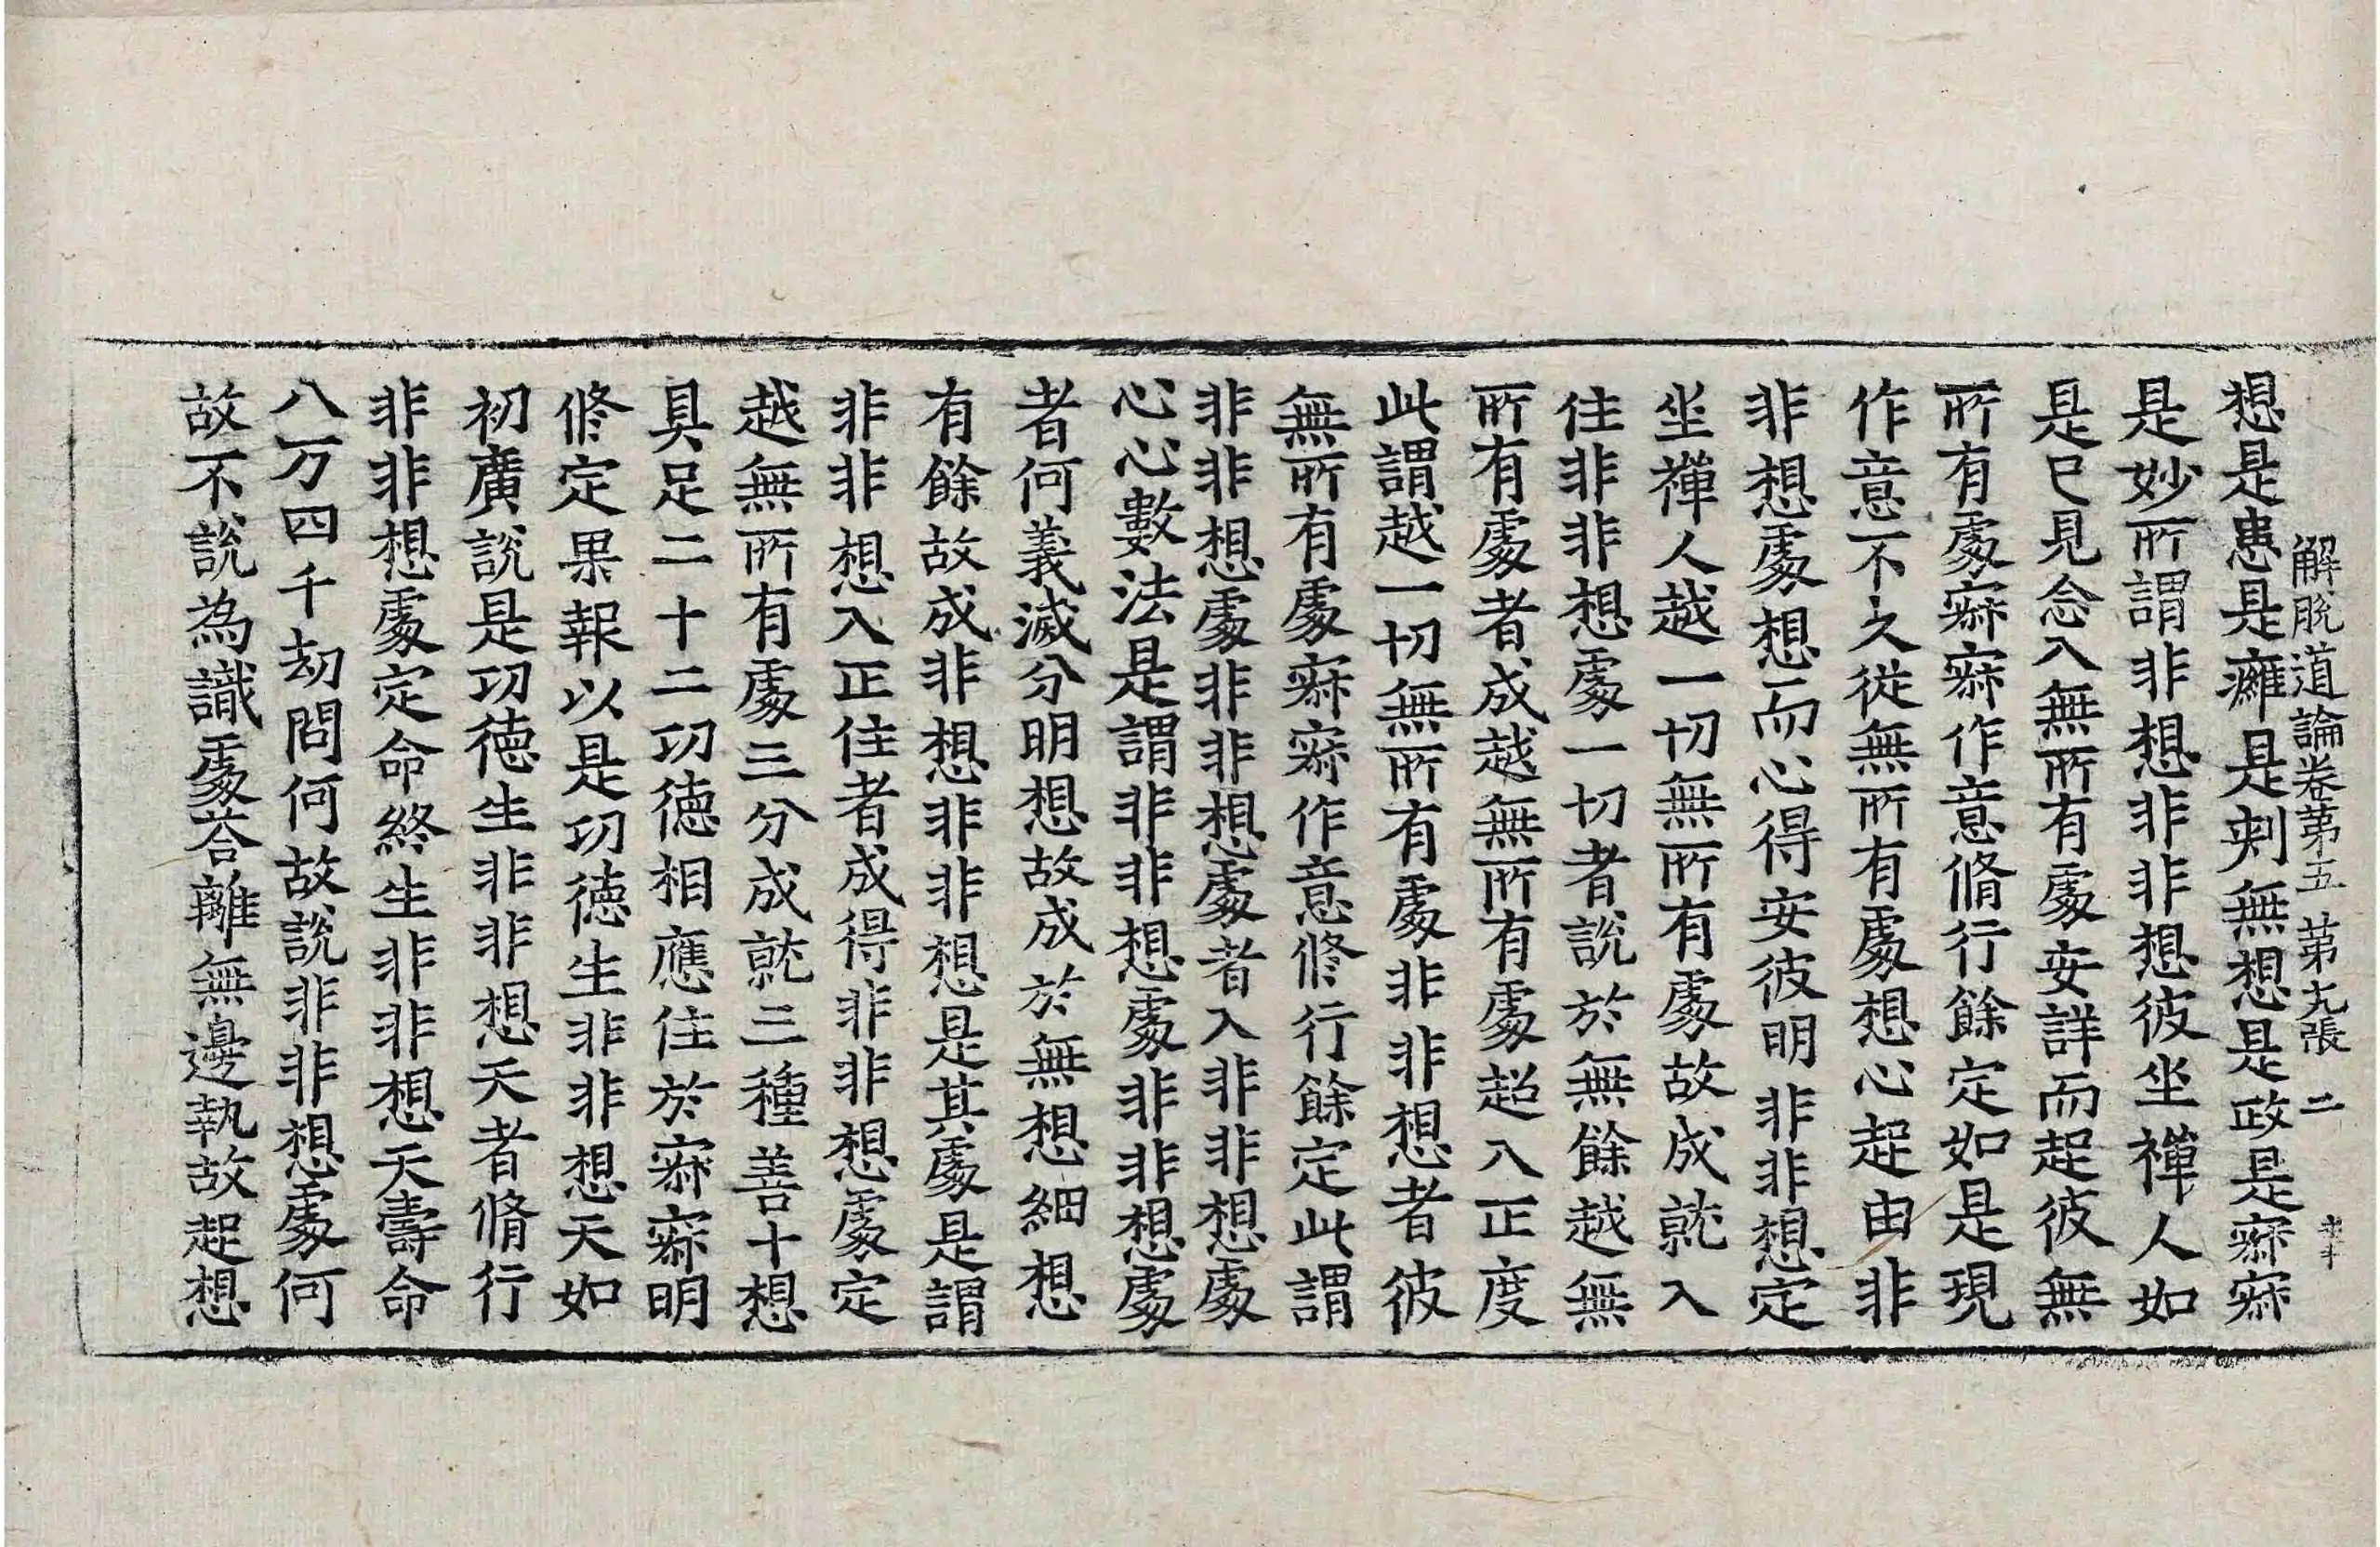 解脫道論卷第五 第 張 二
想是患是癰是刾無想是政是寂寂
是妙所謂非想非非想彼坐禪人如
是已見念入無所有處安詳而起彼無
所有處寂寂作意脩行餘定如是現
作意不久從無所有處想心起由非
非想處想而心得安彼明非非想定
坐禪人越一切無所有處故成就入
住非非想處一切者說於無餘越無
所有處者成越無所有處超入正度
此謂越一切無所有處非非想者彼
無所有處寂寂作意修行餘定此謂
非非想處非非想處者入非非想處
心心數法是謂非非想處非非想處
者何義滅分明想故成於無想細想
有餘故成非想非非想是其處是謂
非非想入正住者成得非非想處定
越無所有處三分成就三種善十想
具足二十二功德相應住於寂寂明
修定果報以是功德生非非想天如
初廣說是功德生非非想天者脩行
非非想處定命終生非非想天壽命
八万四千劫問何故說非非想處何
故不說為識處荅離無邊執故起想